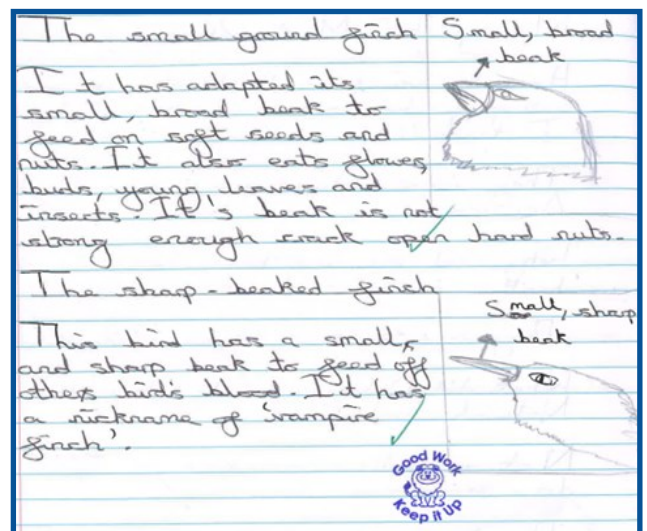 The small ground finch
Small, broad
beak
It has adapted its
small, broad beak to
feed on soft seeds and
nuts. It also eats flower,
buds, young leaves and
insects. It's beak is not
strong enough crack open hard nuts.
The sharp-beaked finch
Small, sharp
beak
This bird has a small,
and sharp beak to feed off
others bird's blood. It has
a nickname of 'vampire
finch'.
Good Work
Keep it Up